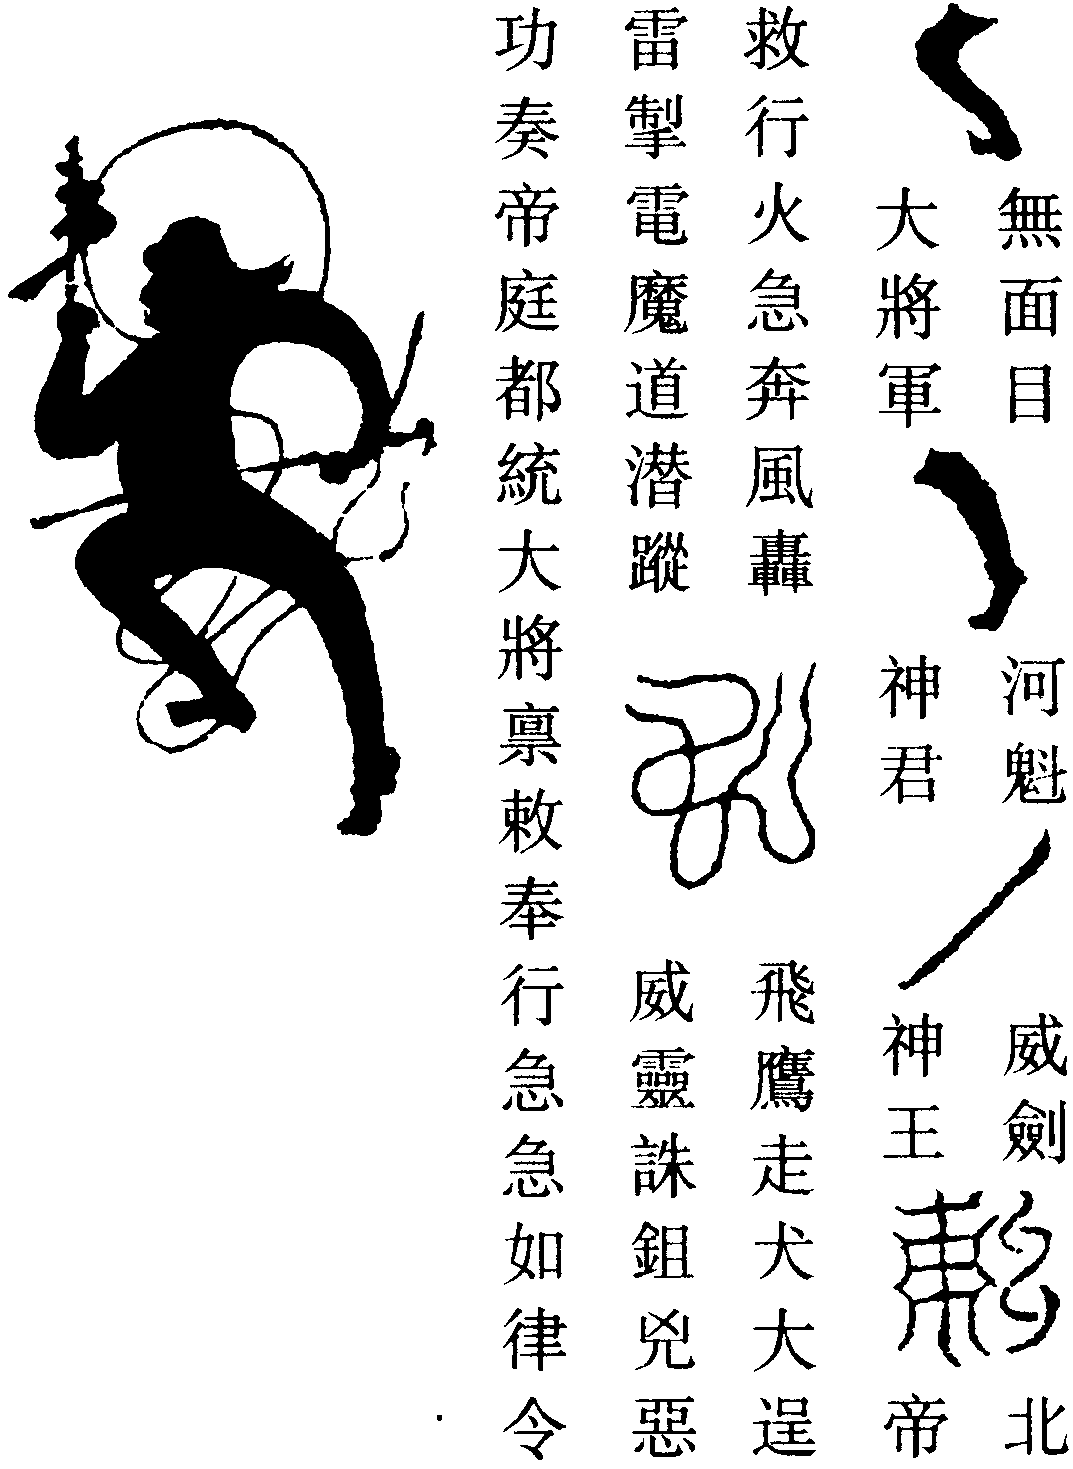 無面目
大將軍
河魁
神君
威劍
神王
北
帝
救行火急奔風轟
雷掣電魔道潜蹤
飛鷹走犬大逞
威靈誅鉏兇惡
功奏帝庭都統大將禀敕奉行急急如律令